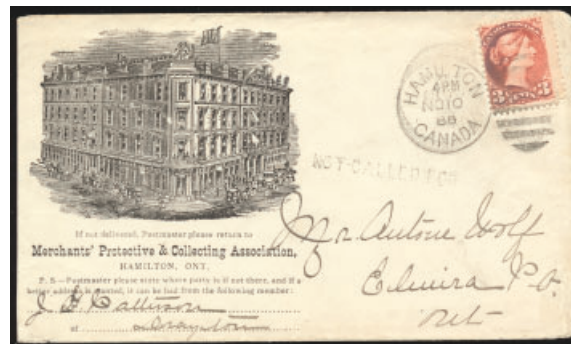 HAMILTON
4 PM
NO 10
88
CANADA
NOT CALLED FOR
If not delivered, Postmaster please return to
Merchants' Protective & Collecting Association,
HAMILTON, ONT.
P. S.—Postmaster please state where party is if not there, and if a
better address is wanted, it can be had from the following member:
at Drayton
Mr Antone Wolf
Elmira P.O.
Ont